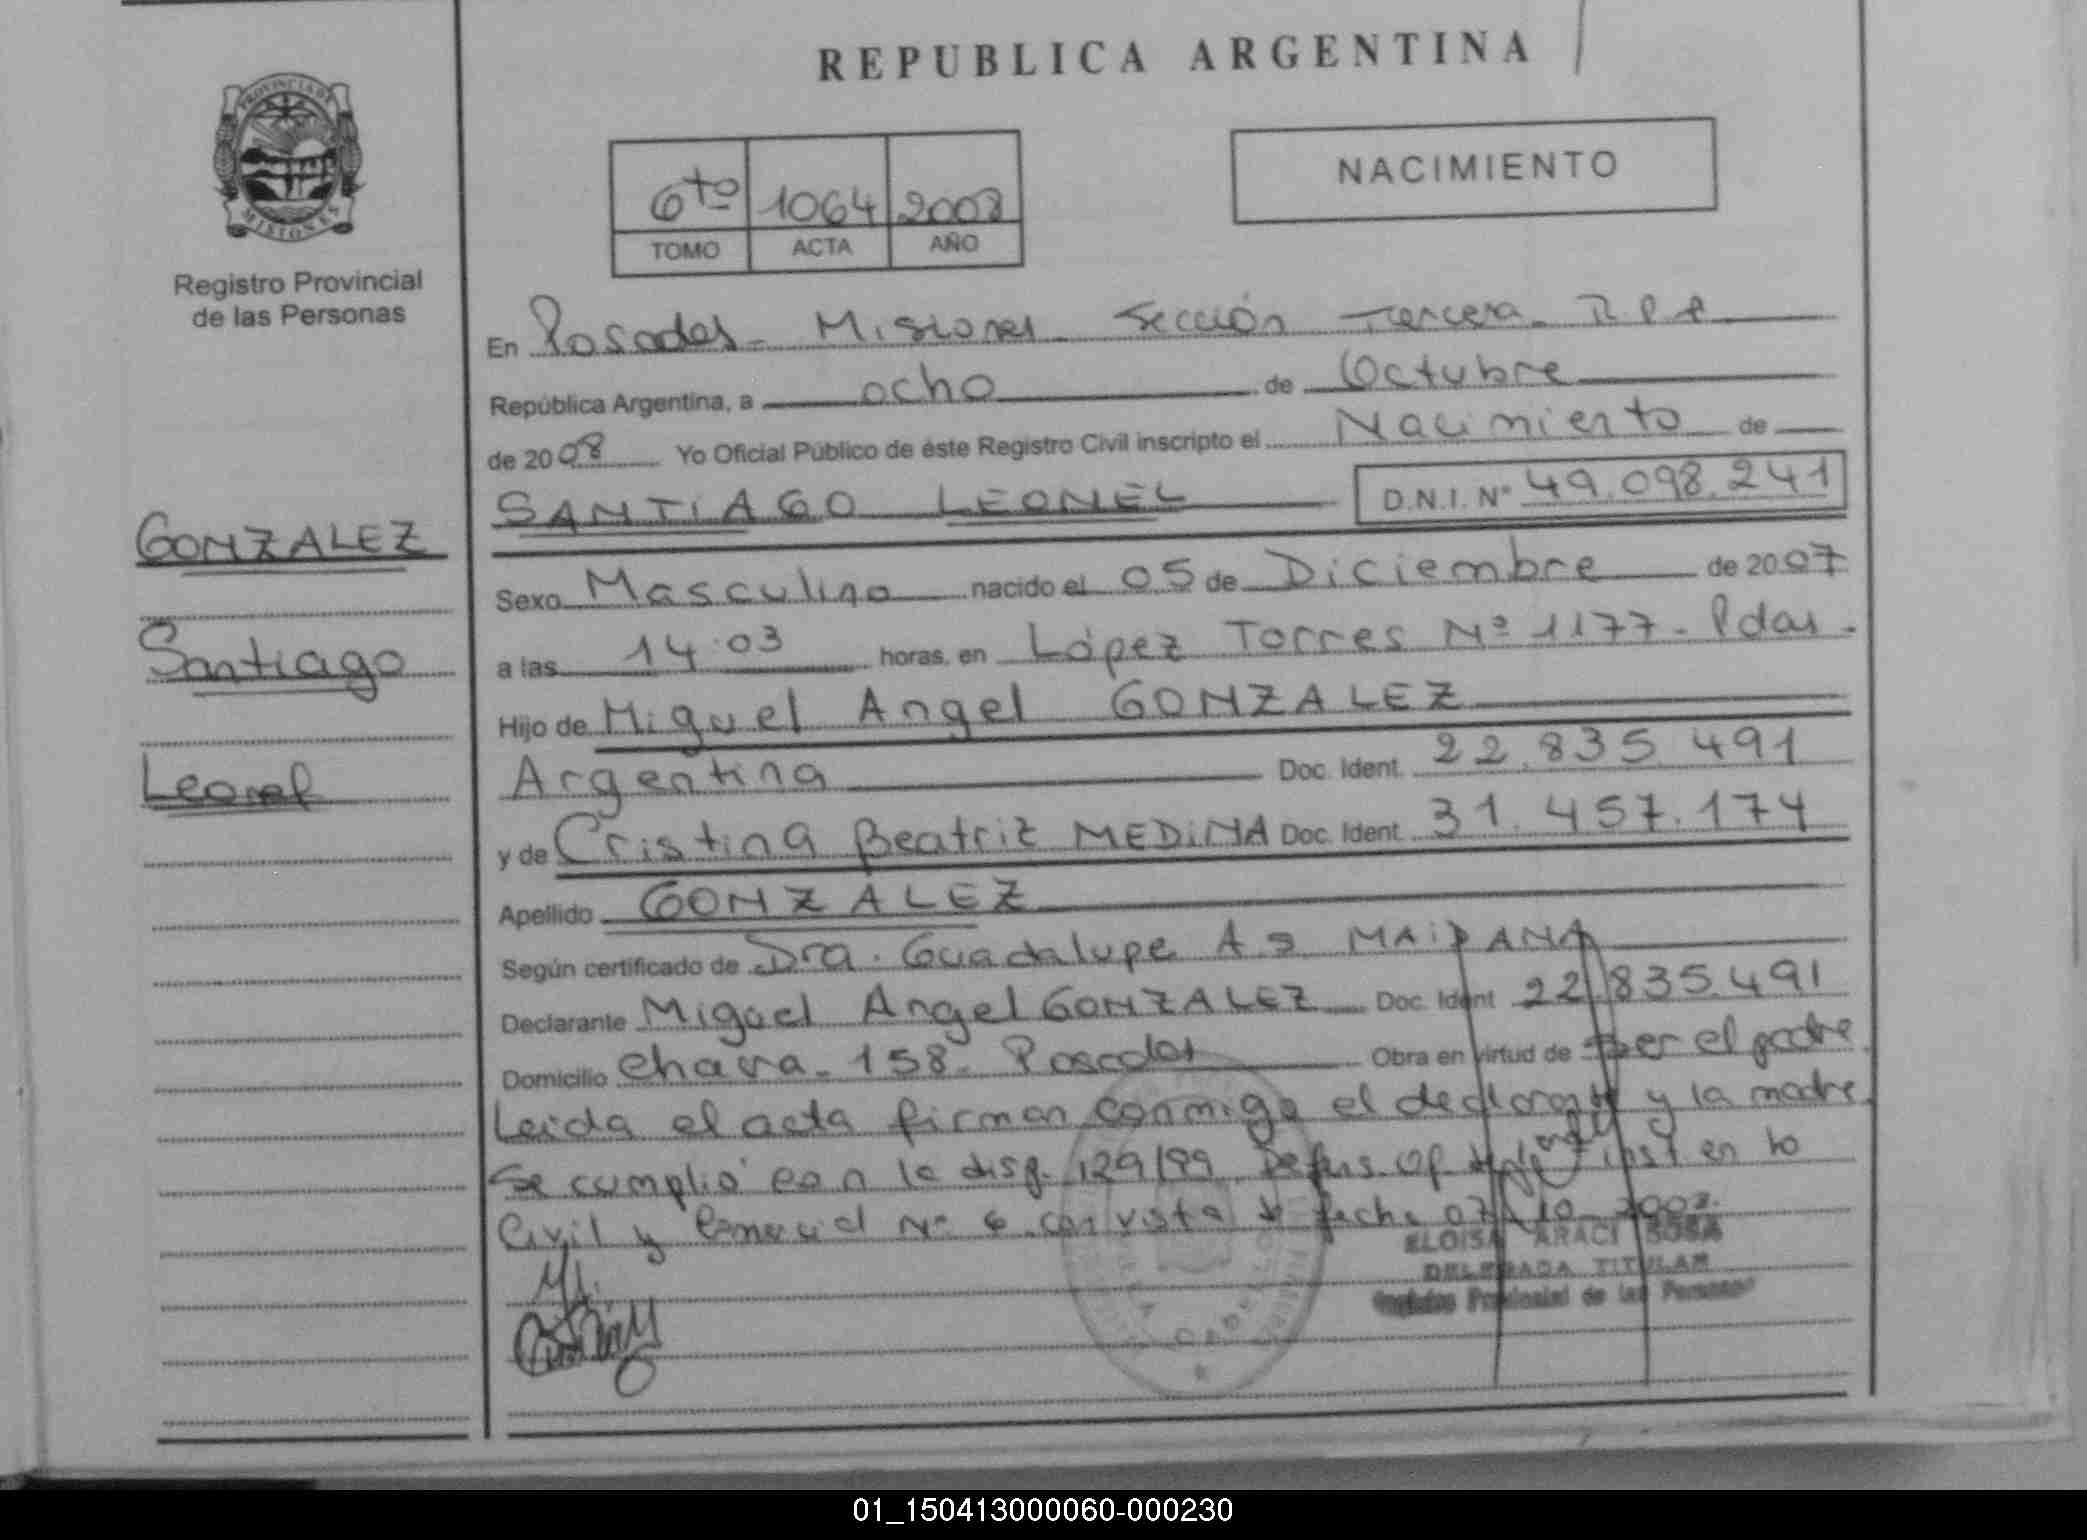 REPUBLICA ARGENTINA
PROVINCIA DE
MISIONES
Registro Provincial
de las Personas
6to 1064 2008
TOMO ACTA AÑO
NACIMIENTO
GONZALEZ
Santiago
Leonel
En Posadas - Misiones - Sección Tercera - R P P
República Argentina, a ocho de Octubre
de 2008 Yo Oficial Público de éste Registro Civil inscripto el Nacimiento de
SANTIAGO LEONEL D.N.I. Nº 49.098.241
Sexo Masculino nacido el 05 de Diciembre de 2007
a las 14:03 horas, en López Torres Nº 1177 - Pdas.
Hijo de Miguel Angel GONZALEZ
Argentina Doc. Ident. 22.835.491
y de Cristina Beatriz MEDINA Doc. Ident. 31.457.174
Apellido GONZALEZ
Según certificado de Dra. Guadalupe A. S. MAIDANA
Declarante Miguel Angel GONZALEZ Doc. Ident 22.835.491
Domicilio Chacra - 158 - Posadas Obra en virtud de ser el padre.
Leida el acta firman conmigo el declarante y la madre.
Se cumplió con la disp. 129/99 Defens. Of inst en lo
Civil y Comercial Nº 6 con vista de fecha 07-10-2008.
ELOISA ARACI SOSA
DELEGADA TITULAR
Registro Provincial de las Personas
01_150413000060-000230